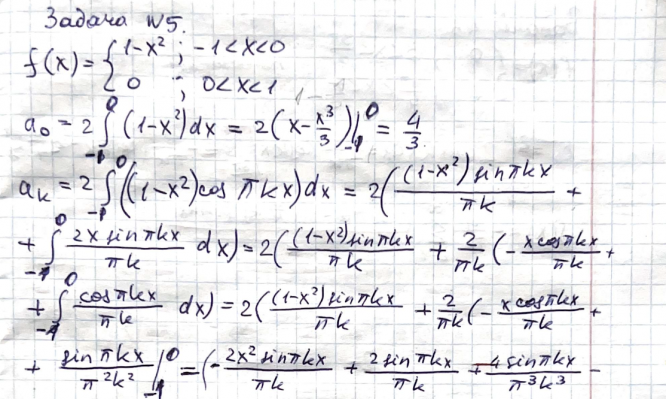 Задача №5.
f(x) = { 1-x² ; -1<x<0
0 ; 0<x<1
a₀ = 2 ∫₋₁⁰ (1-x²)dx = 2(x - x³/3)|₋₁⁰ = 4/3
aₖ = 2 ∫₋₁⁰ ((1-x²)cos πkx)dx = 2( (1-x²)sinπkx / πk +
+ ∫₋₁⁰ 2x sinπkx / πk dx) = 2( (1-x²)sinπkx / πk + 2/πk (- x cosπkx / πk +
+ ∫₋₁⁰ cosπkx / πk dx) = 2( (1-x²)sinπkx / πk + 2/πk (- x cosπkx / πk +
+ sinπkx / π²k² |₋₁⁰ = (- 2x² sinπkx / πk + 2 sinπkx / πk + 4 sinπkx / π³k³ -